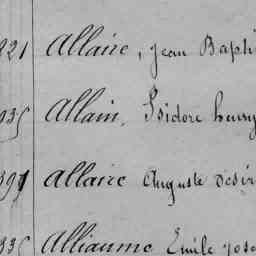 821 Allaire, Jean Bapti
935 Allain, Isidore henry
Allaire Auguste Désir
835 Alliaume Emile jose